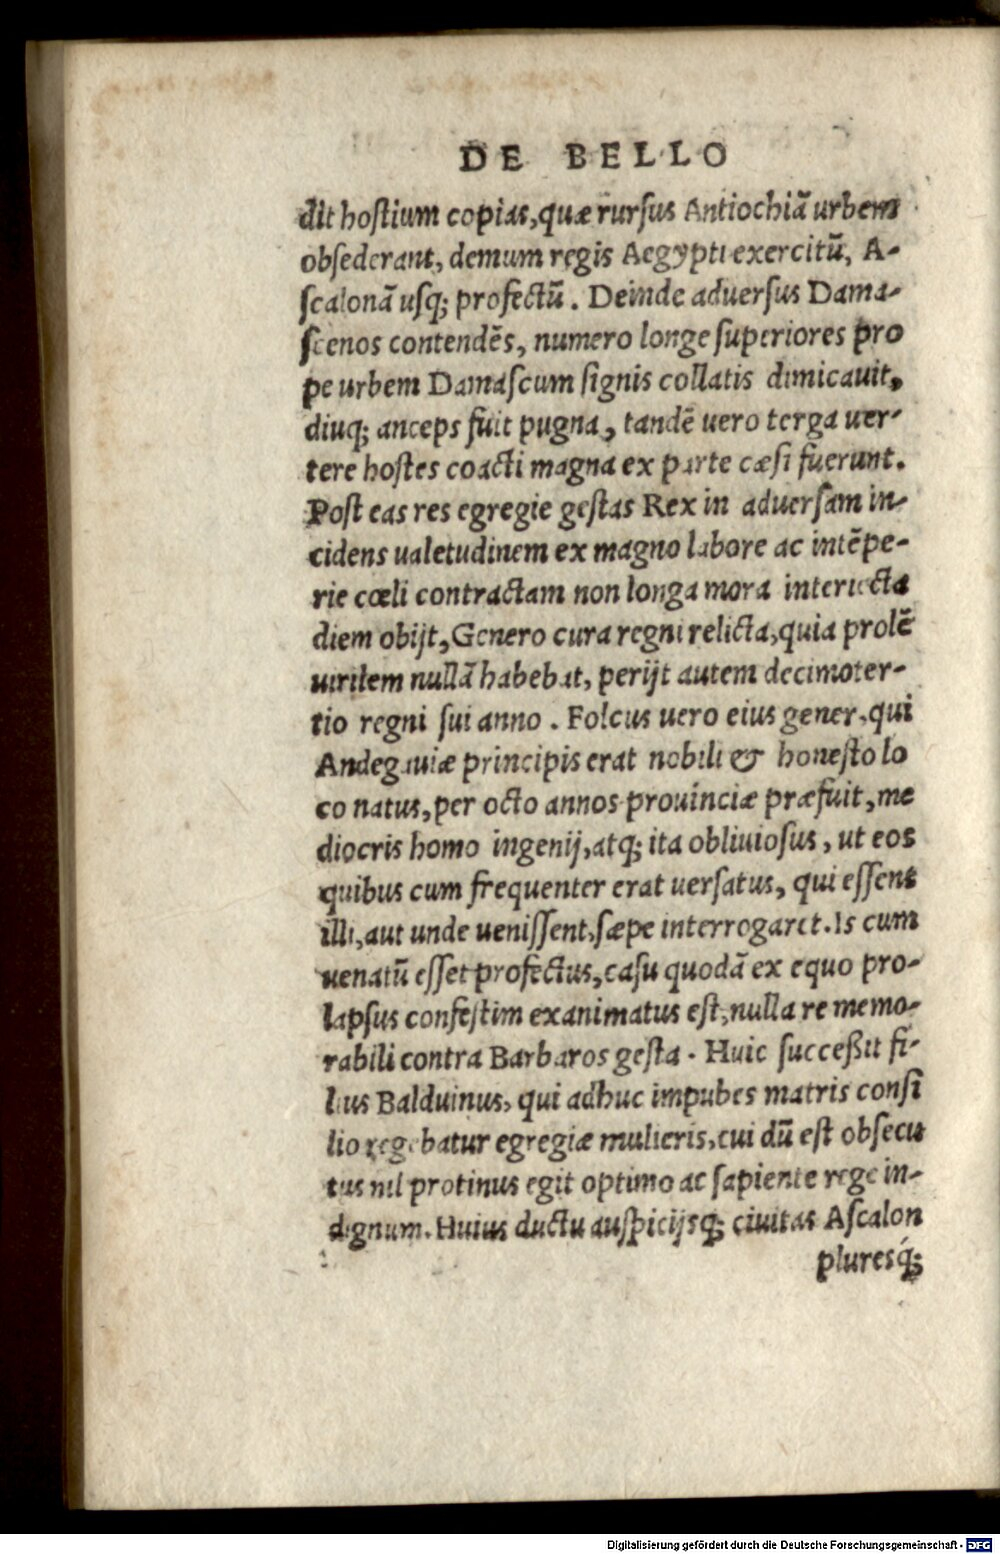 DE BELLO
dit hostium copias, quæ rursus Antiochiã urbem
obsederant, demum regis Aegypti exercitũ, A-
scalonã usq; profectũ. Deinde adversus Dama-
scenos contendẽs, numero longe superiores pro
pe urbem Damascum signis collatis dimicavit,
diuq; anceps fuit pugna, tandẽ uero terga uer-
tere hostes coacti magna ex parte cæsi fuerunt.
Post eas res egregie gestas Rex in adversam in-
cidens ualetudinem ex magno labore ac intẽpe-
rie cœli contractam non longa mora interiecta
diem obijt, Genero cura regni relicta, quia prolẽ
uirilem nullã habebat, perijt autem decimoter-
tio regni sui anno. Folcus uero eius gener, qui
Andegauiæ principis erat nobili & honesto lo
co natus, per octo annos prouinciæ præfuit, me
diocris homo ingenij, atq; ita obliuiosus, ut eos
quibus cum frequenter erat uersatus, qui essent
illi, aut unde uenissent, sæpe interrogaret. Is cum
uenatũ esset profectus, casu quodã ex equo pro-
lapsus confestim exanimatus est, nulla re memo-
rabili contra Barbaros gesta. Huic succeßit fi-
lius Balduinus, qui adhuc impubes matris consi
lio regebatur egregiæ mulieris, cui dũ est obsecu
tus nil protinus egit optimo ac sapiente rege in-
dignum. Huius ductu auspicijsq; ciuitas Ascalon
pluresq́;
Digitalisierung gefördert durch die Deutsche Forschungsgemeinschaft - DFG